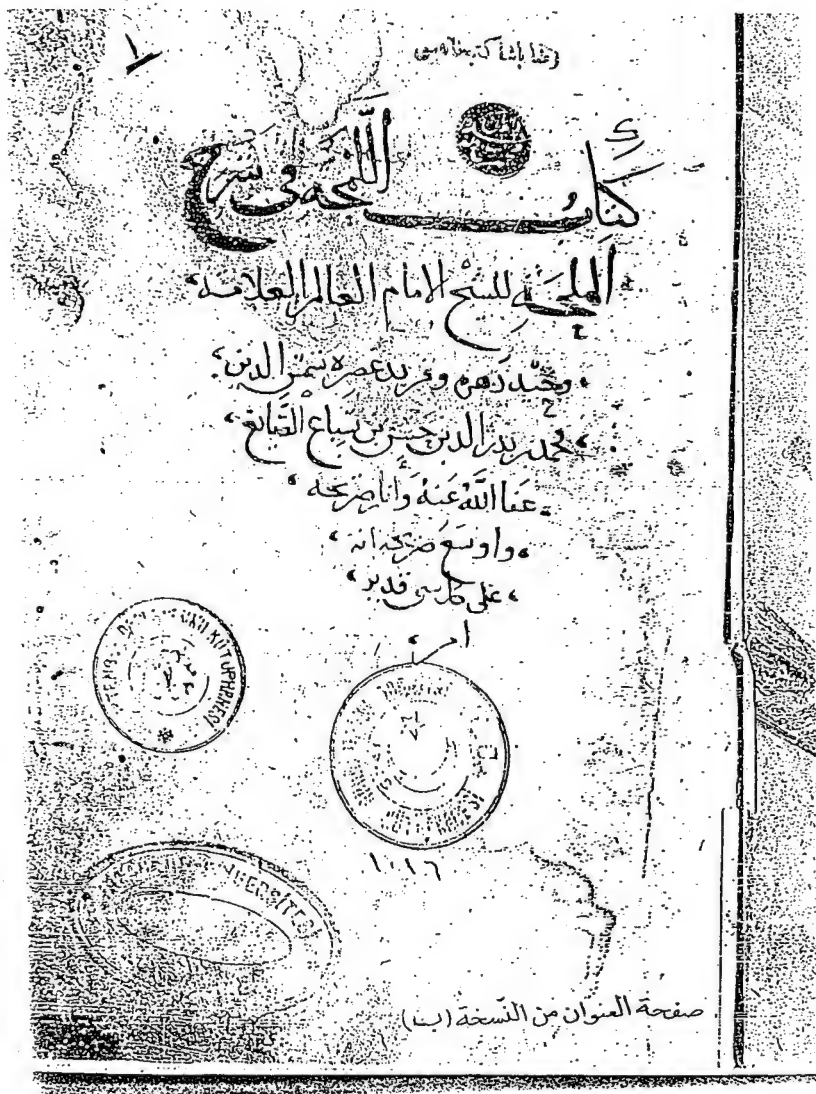 ١
رضا پاشا كتبخانه سى
كتاب اللمحه فى شرح
الملحة للشيخ الامام العالم العلامه
وحيد دهره وفريد عصره شمس الدين
محمد بن بدر الدين حسن بن سباع الصايغ
عفا الله عنه وأنار ضريحه
واوسع ضريحه انه
على كل شى قدير
KÜTÜPHANESI
١٠١٦
صفحة العنوان من النسخة (ب)